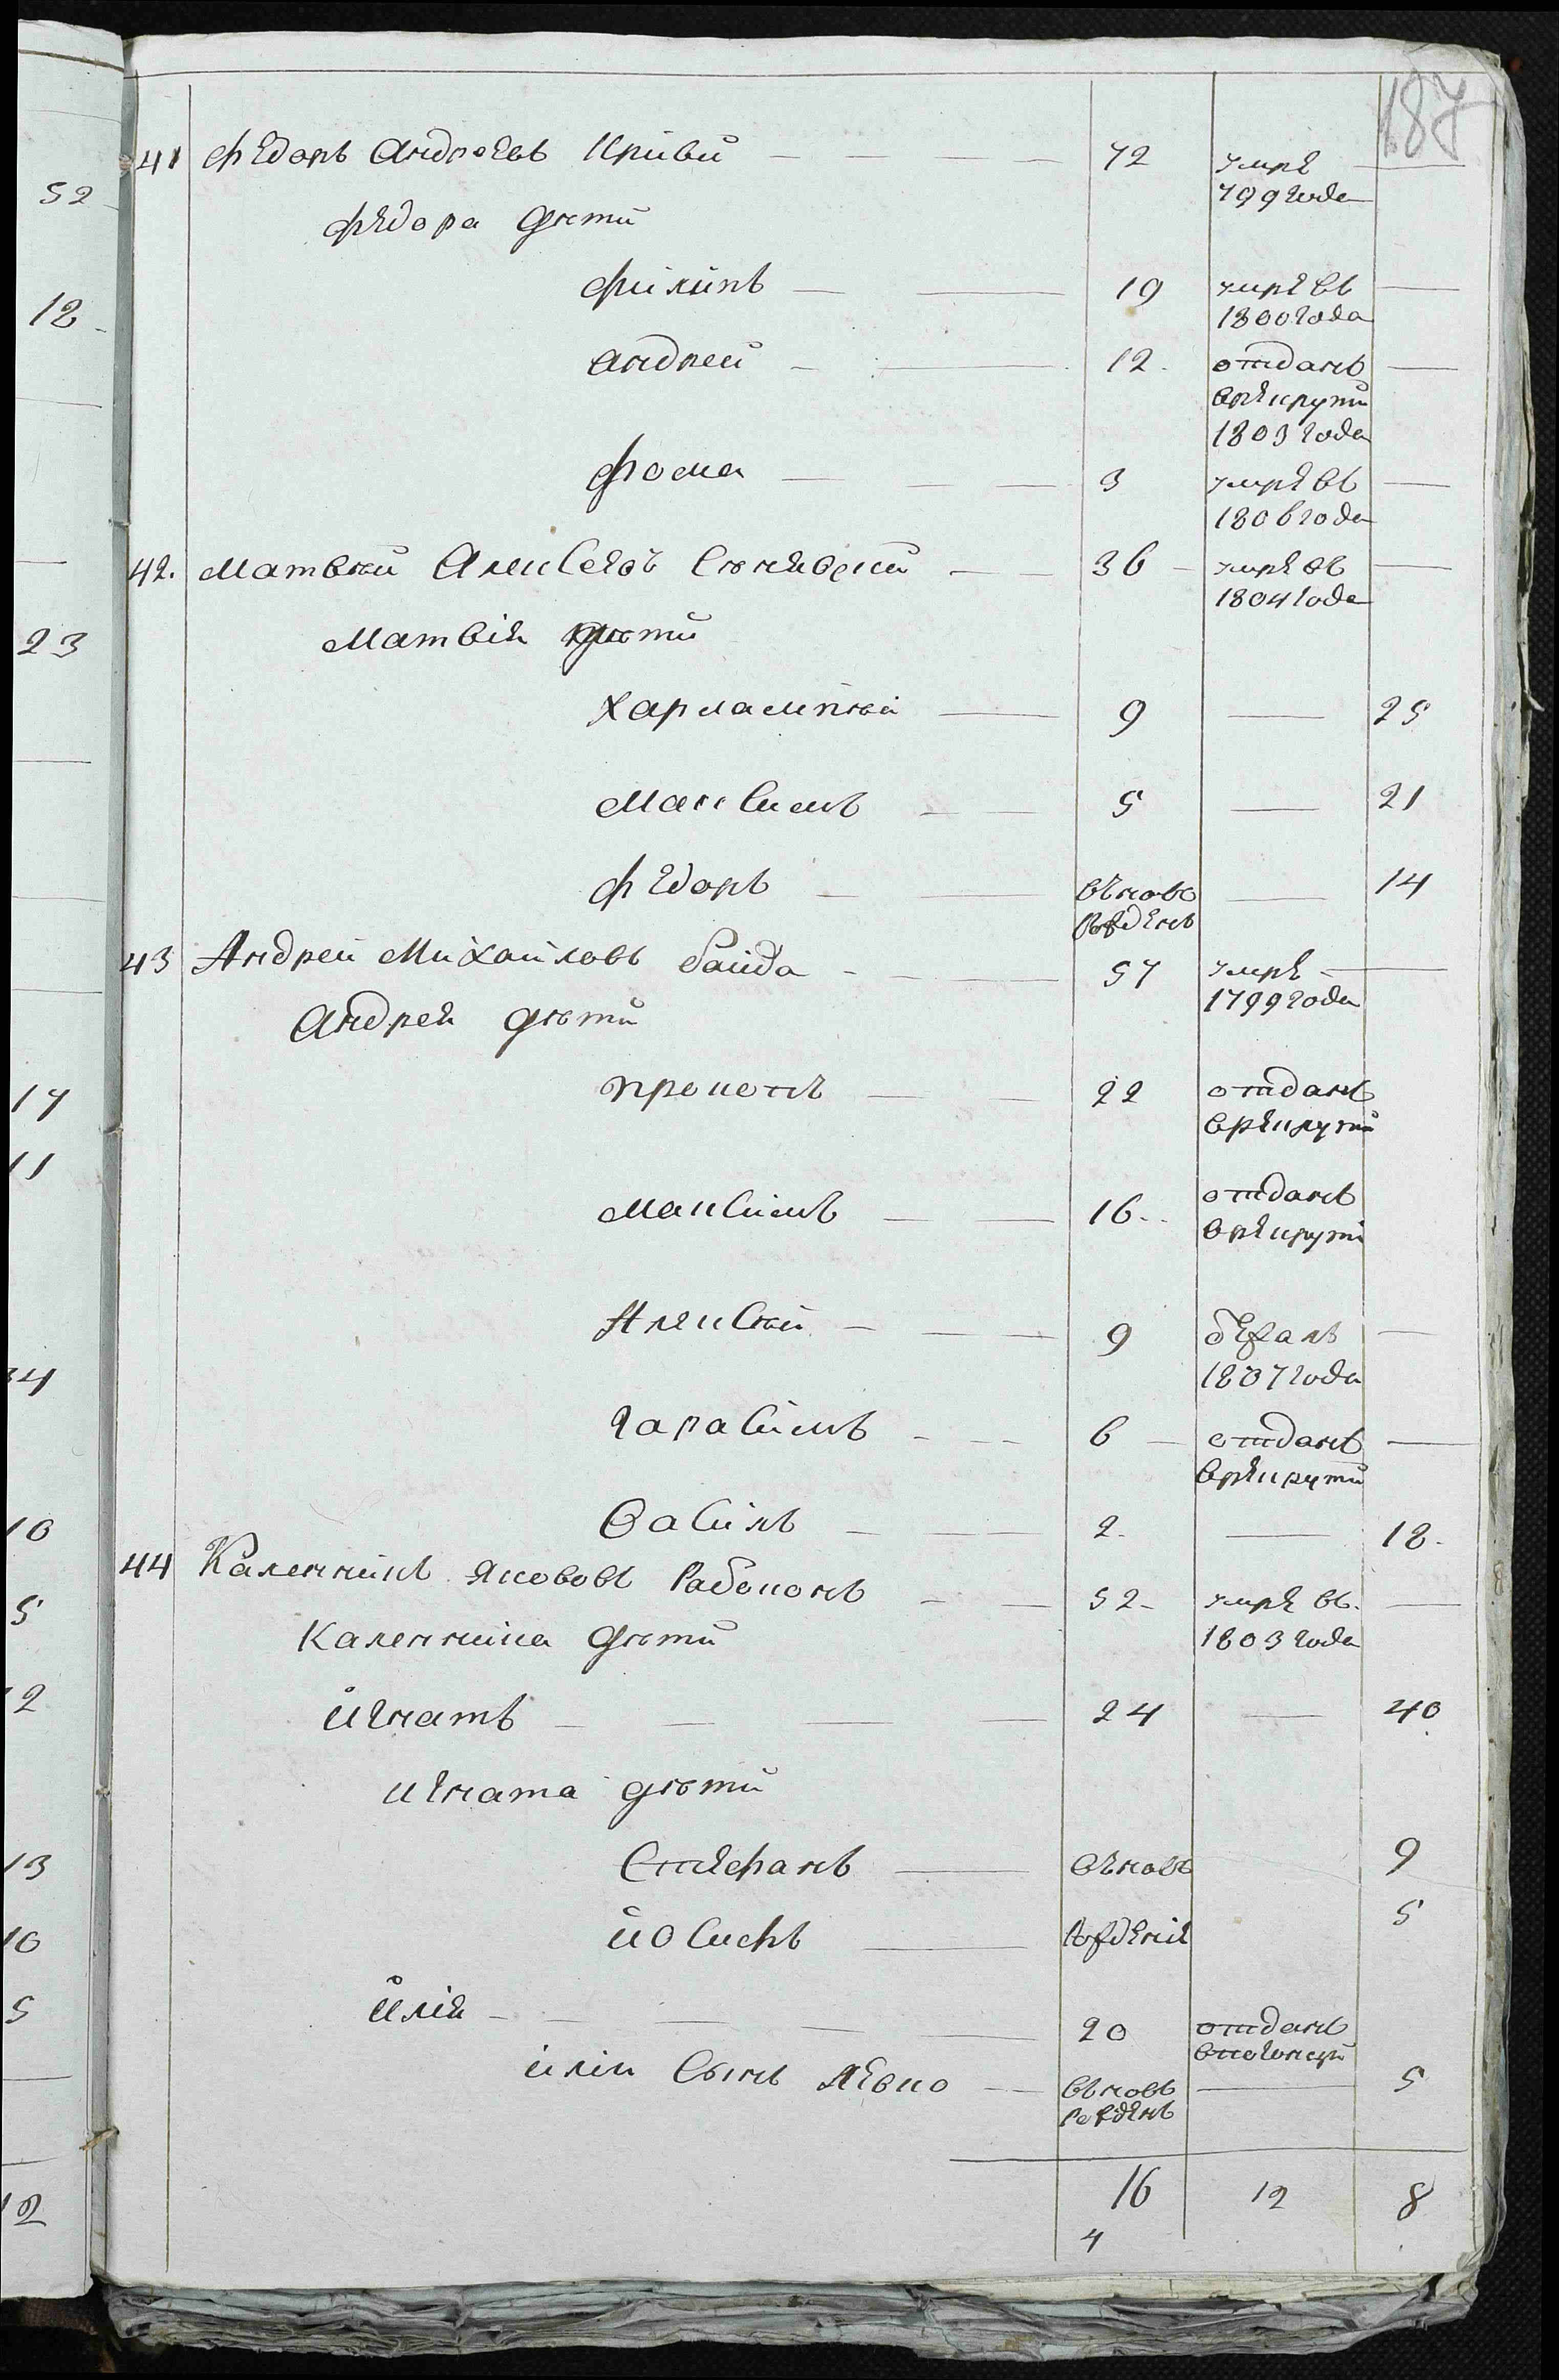 187
41 Федоръ Андреевъ Криви 72 умре
799 года
Федора дѣти
Филипъ 19 умре въ
1800 года
Андрей 12 отданъ
врекрути
1803 года
Фома 3 умре въ
1806 года
42. Матвѣй Алексеевъ 36 умре въ
1804 года
Матвія дѣти
Харлампѣй 9 25
Максимъ 5 21
Федоръ вновь 14
рожденъ
43 Андрей Михайловъ Байда 57 умре
1799 года
Андрея дѣти
Прокопъ 22 отданъ
врекрути
Максимъ 16 отданъ
врекруті
Алексѣй 9 бежалъ
1807 года
Гарасимъ 6 отданъ
врекрути
Василь 2 18
44 Каленникъ Якововъ Рабоконь 52 умре въ
1803 года
Каленника дѣти
Игнатъ 24 40
Игната дѣти
Стефанъ вновь 9
Иосифъ рожденіе 5
Илія 20 отданъ
Иліи сынъ Левко вновь 5
рожденъ
16 12 8
4
52
12
23
17
11
34
10
5
2
13
10
5
12